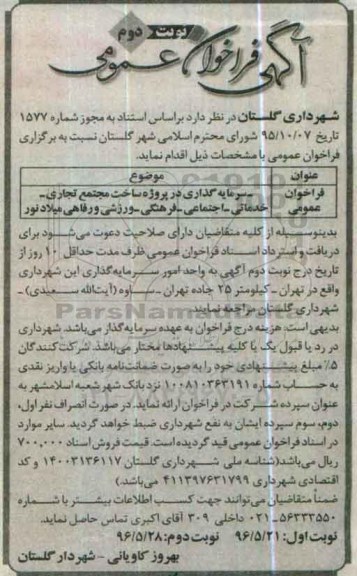 نوبت دوم
آگهی فراخوان عمومی
شهرداری گلستان در نظر دارد براساس استناد به مجوز شماره ۱۵۷۷
تاریخ ۹۵/۱۰/۰۷ شورای محترم اسلامی شهر گلستان نسبت به برگزاری
فراخوان عمومی با مشخصات ذیل اقدام نماید.
عنوان موضوع
فراخوان عمومی -سرمایه گذاری در پروژه ساخت مجتمع تجاری-
خدماتی-اجتماعی-فرهنگی-ورزشی ورفاهی میلاد نور
بدینوسیله از کلیه متقاضیان دارای صلاحیت دعوت می‌شود برای
دریافت و استرداد اسناد فراخوان عمومی ظرف مدت حداقل ۱۰ روز از
تاریخ درج نوبت دوم آگهی به واحد امور سرمایه‌گذاری این شهرداری
واقع در تهران-کیلومتر ۲۵ جاده تهران-ساوه (آیت‌الله سعیدی)-
شهرداری گلستان مراجعه نمایند.
بدیهی است: هزینه درج فراخوان به عهده سرمایه‌گذار می‌باشد. شهرداری
در رد یا قبول یک یا کلیه پیشنهادها مختار می‌باشد. شرکت کنندگان
۵٪ مبلغ پیشنهادی خود را به صورت ضمانت‌نامه بانکی یا واریز نقدی
به حساب شماره ۱۰۰۸۱۰۳۶۳۱۹۱ نزد بانک شهر شعبه اسلامشهر به
عنوان سپرده شرکت در فراخوان ارائه نماید. در صورت انصراف نفر اول،
دوم، سوم سپرده ایشان به نفع شهرداری ضبط خواهد گردید. سایر موارد
در اسناد فراخوان عمومی قید گردیده است. قیمت فروش اسناد ۷۰۰,۰۰۰
ریال می‌باشد(شناسه ملی شهرداری گلستان ۱۴۰۰۳۱۳۶۱۱۷ و کد
اقتصادی شهرداری ۴۱۱۳۹۷۶۳۱۷۹۹ می‌باشد.)
ضمناً متقاضیان می‌توانند جهت کسب اطلاعات بیشتر با شماره
۵۶۳۳۳۵۵۰-۰۲۱ داخلی ۳۰۹ آقای اکبری تماس حاصل نماید.
نوبت اول: ۹۶/۵/۲۱ نوبت دوم: ۹۶/۵/۲۸
بهروز کاویانی - شهردار گلستان